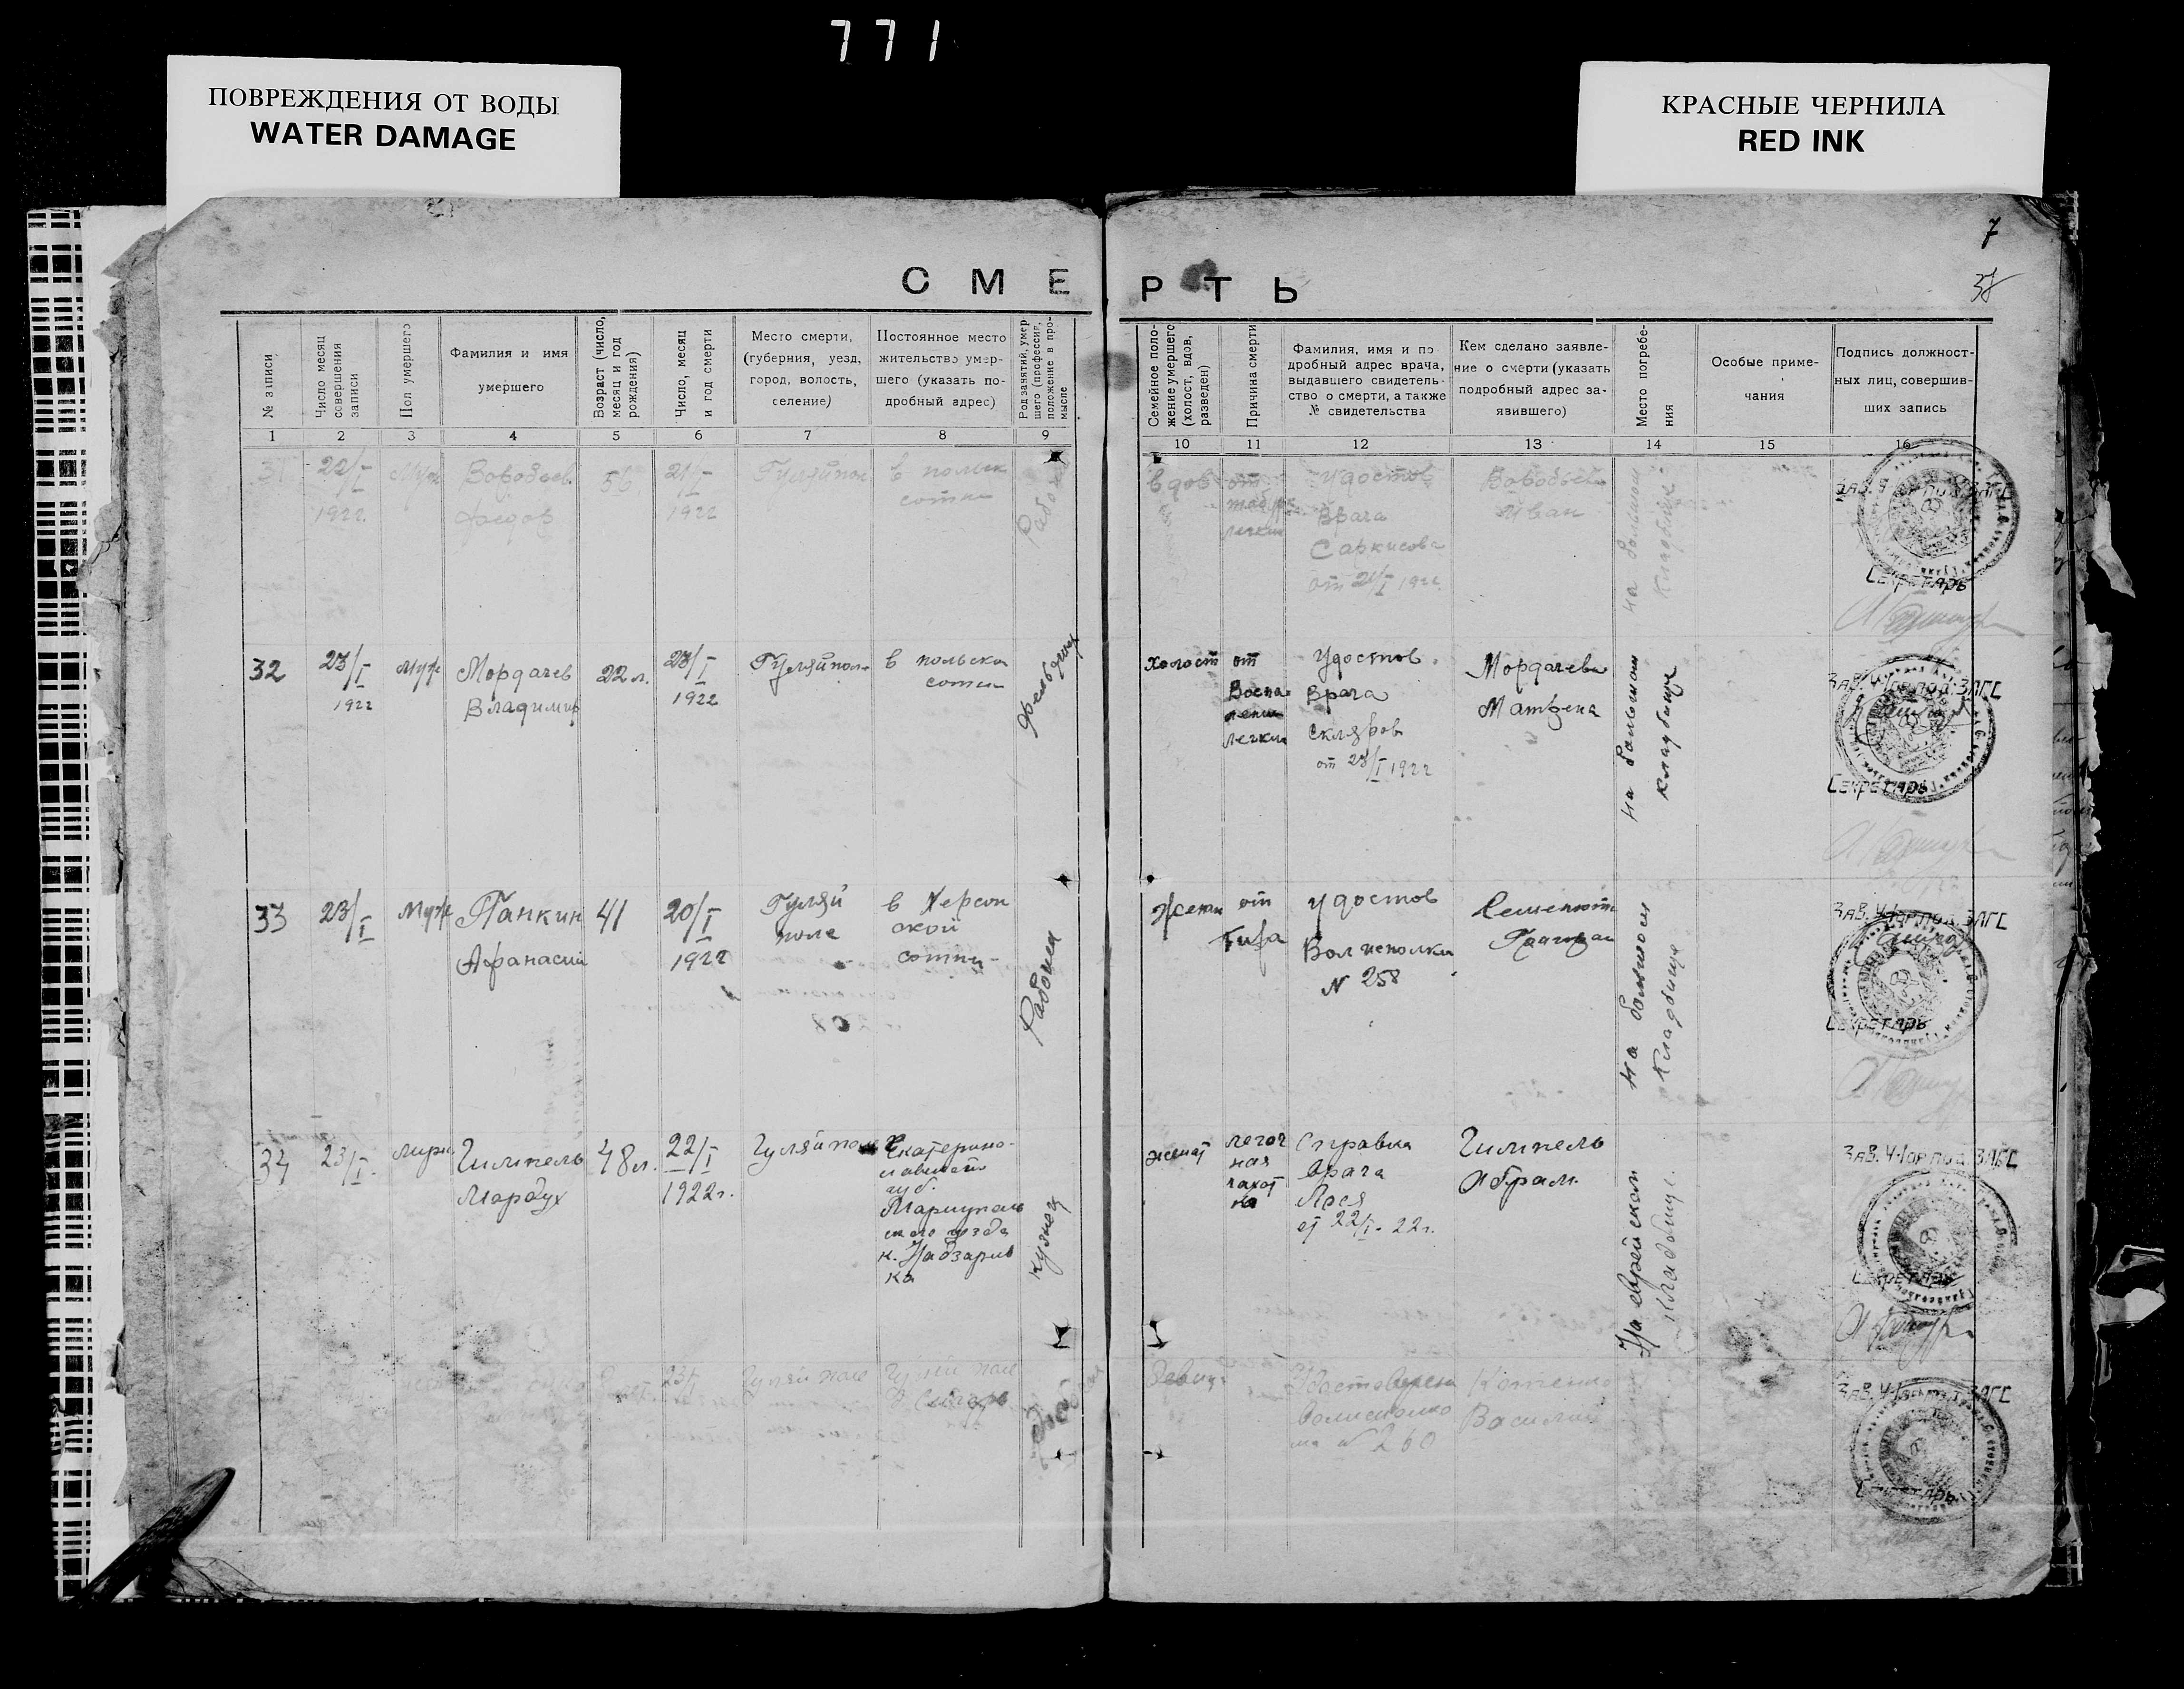 771
ПОВРЕЖДЕНИЯ ОТ ВОДЫ
WATER DAMAGE
КРАСНЫЕ ЧЕРНИЛА
RED INK
7
СМЕРТЬ
№ записи
Число месяц
совершения
записи
Пол умершего
Фамилия и имя
умершего
Возраст (число,
месяц и год
рождения)
Число, месяц
и год смерти
Место смерти,
(губерния, уезд,
город, волость,
селение)
Постоянное место
жительство умер-
шего (указать по-
дробный адрес)
Род занятий, умер
шего (профессия,
положение в про-
мысле
Семейное поло-
жение умершего
(холост, вдов,
разведен)
Причина смерти
Фамилия, имя и по
дробный адрес врача,
выдавшего свидетель-
ство о смерти, а также
№ свидетельства
Кем сделано заявле-
ние о смерти (указать
подробный адрес за-
явившего)
Место погребе-
ния
Особые приме-
чания
Подпись должност-
ных лиц, совершив-
ших запись
1 2 3 4 5 6 7 8 9 10 11 12 13 14 15 16
31
22/I
1922.
Муж
Воробьев
Федор
56
21/I
1922
Гуляйпол
в польск
сотни
вдов
от
легких
Удостов
Врача
Саркисова
от 21/I 1922.
Воробьев
Иван
на большом
кладбище
Секретарь
32
23/I
1922
муж
Мордачев
Владимир
22 л.
23/I
1922
Гуляйполе
в польско
сотни
холост
от
Воспа
ления
легких
Удостов.
Врача
Скляров
от 23/I 1922
Мордачева
Матрена
на большом
кладбище
Секретарь
33
23/I
Муж
Панкин
Афанасий
41
20/I
1922
Гуляй
поле
в Херсон
ской
сотни-
Рабочий
Женат
от
Тифа
удостов
Волисполки
N 258
на большом
кладбище
Секретарь
34
23/I.
муж.
Гимпель
Мардух
48 л.
22/I
1922 г.
Гуляйполе
Екатерино-
славской
губ.
Мариуполь
ского уезда
кузнец
женат
легоч
ная
чахот
ка
Справка
Врача
от 22/I-22г.
Гимпель
Абрам.
На еврейском
кладбище.
Секретарь
23/I
Гуляй поле
Гуляй поле
Девица
Удостоверен
Волисполко
ма № 260
Котенко
Василий
Секретарь